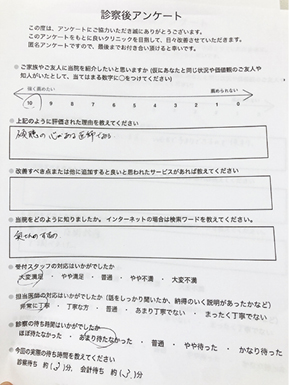 診察後アンケート
この度は、アンケートにご協力いただき誠にありがとうございます。
このアンケートをもとに良いクリニックを目指して、日々改善させていただきます。
匿名アンケートですので、最後までお付き合い頂けると幸いです。
● ご家族やご友人に当院を紹介したいと思いますか (仮にあなたと同じ状況や価値観のご友人や
知人がいたとして、当てはまる数字に○をつけてください)
強く薦めたい 薦められない
10 9 8 7 6 5 4 3 2 1 0
● 上記のように評価された理由を教えてください
傾聴の心がある医師
● 改善すべき点または他に追加すると良いと思われたサービスがあれば教えてください
● 当院をどのように知りましたか。インターネットの場合は検索ワードを教えてください。
● 受付スタッフの対応はいかがでしたか
大変満足 ・ やや満足 ・ 普通 ・ やや不満 ・ 大変不満
● 担当医師の対応はいかがでしたか (話をしっかり聞いたか、納得のいく説明があったかなど)
非常に丁寧 ・ 丁寧な方 ・ 普通 ・ あまり丁寧でない ・ まったく丁寧でない
● 診察の待ち時間はいかがでしたか
ほぼ待たなかった ・ あまり待たなかった ・ 普通 ・ やや待った ・ かなり待った
● 今回の実際の待ち時間を教えてください
診察待ち 約 ( )分、会計待ち 約 ( )分